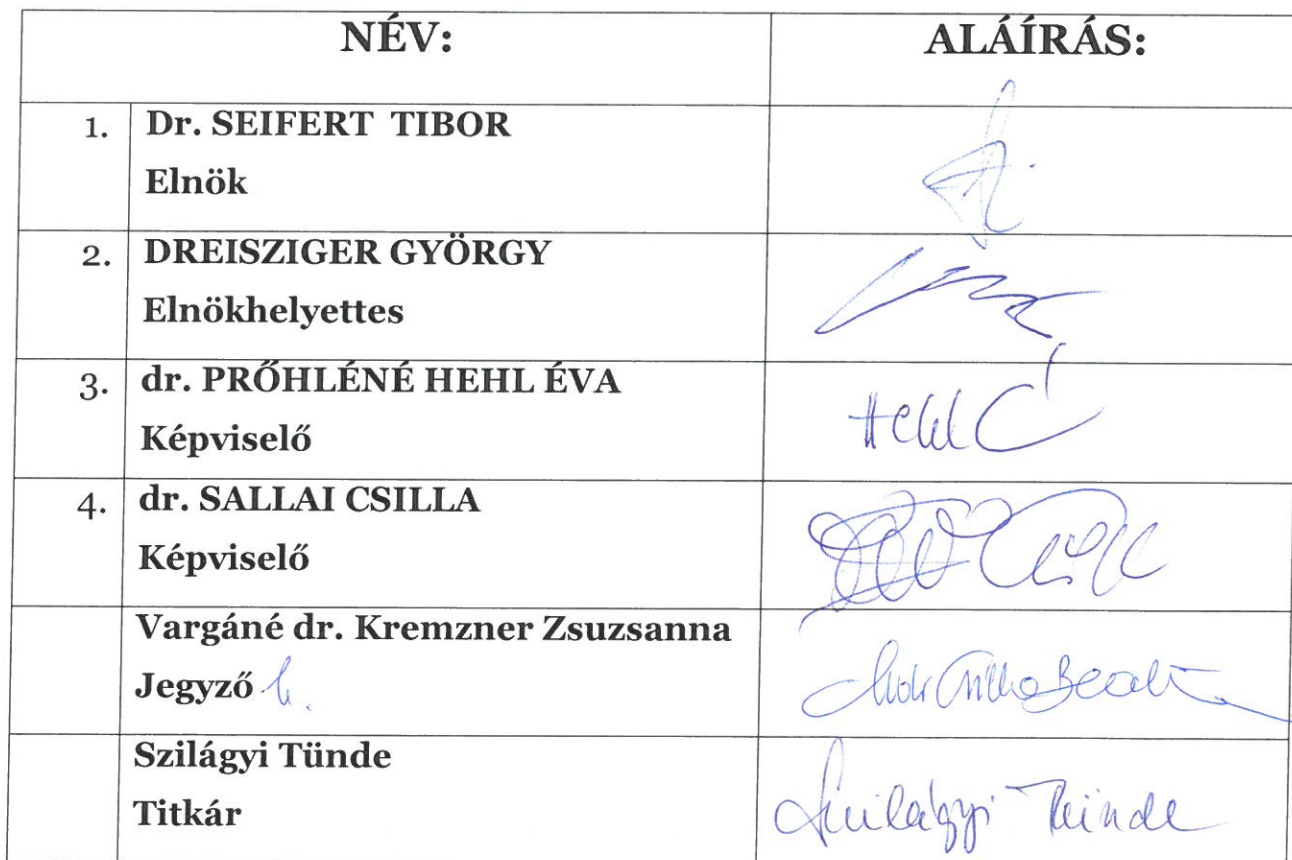 NÉV: ALÁÍRÁS:
1. Dr. SEIFERT TIBOR
Elnök
2. DREISZIGER GYÖRGY
Elnökhelyettes
3. dr. PRŐHLÉNÉ HEHL ÉVA
Képviselő Hehl É
4. dr. SALLAI CSILLA
Képviselő
Vargáné dr. Kremzner Zsuzsanna
Jegyző h.
Szilágyi Tünde
Titkár Szilágyi Tünde